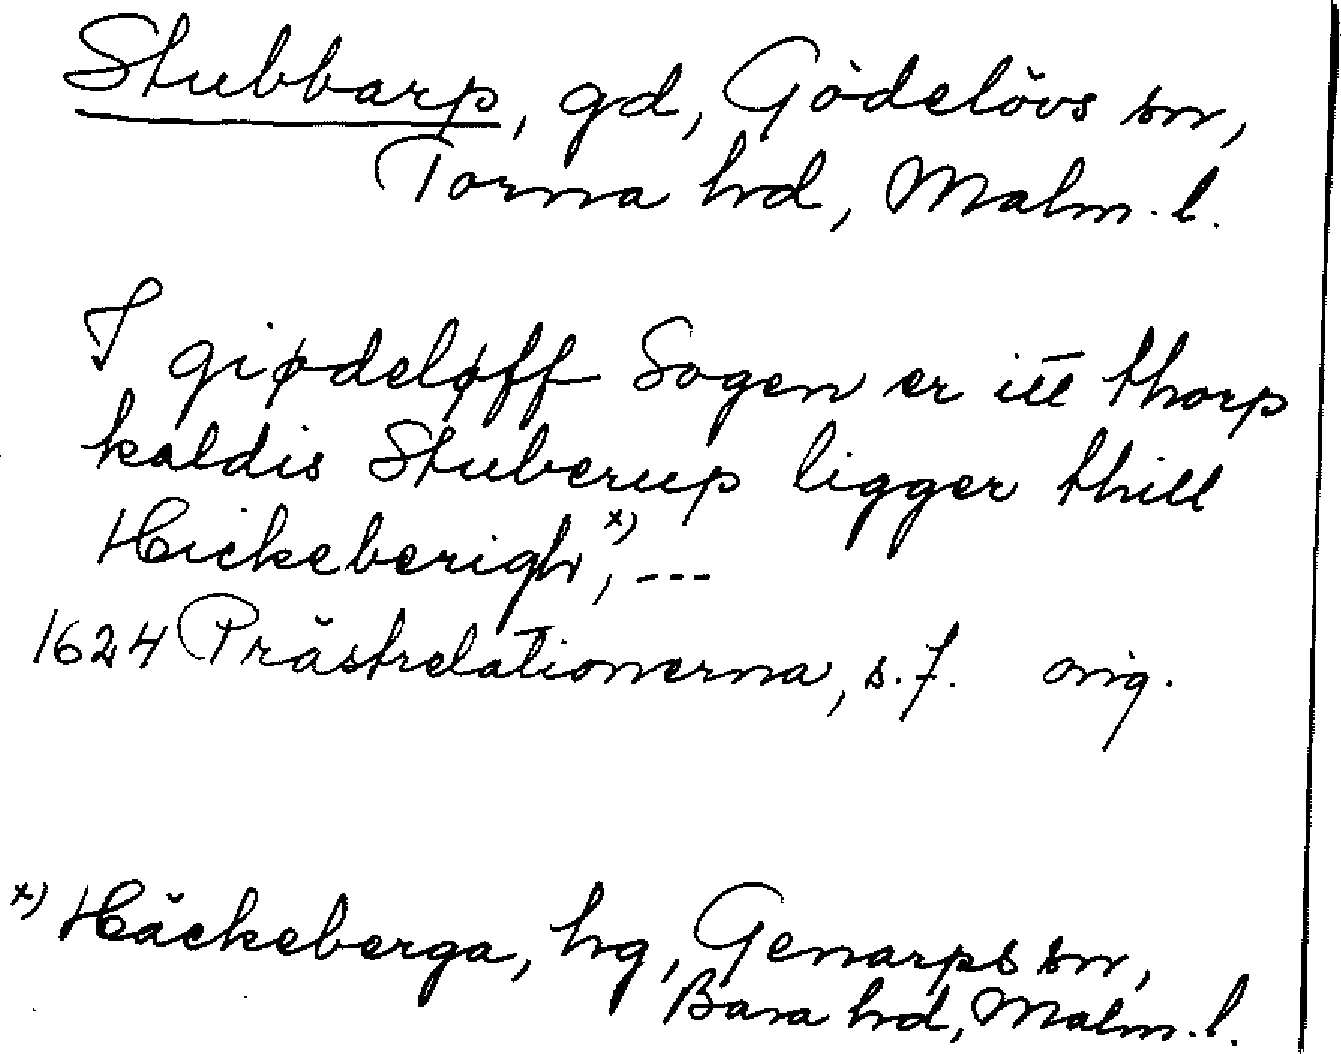 Stubbarp, gd, Gödelövs sn,
Torna hd, Malm. l.
I giødeløff Sogen er itt thorp
kaldis Stuberup ligger thill
Hickeberigh,x) ---
1624 Prästrelationerna, s. 7. orig.
x) Häckeberga, hg, Genarps sn,
Bara hd, Malm. l.